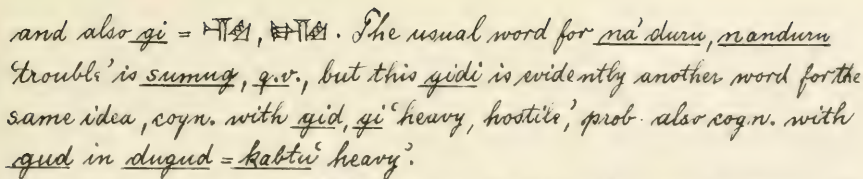 and also gi = 𒄀, 𒄃. The usual word for na'duru, nanduru
'trouble' is sumug, q.v., but this gidi is evidently another word for the
same idea, cogn. with gid, gi 'heavy, hostile,' prob. also cogn. with
gud in dugud = kabtu 'heavy'.